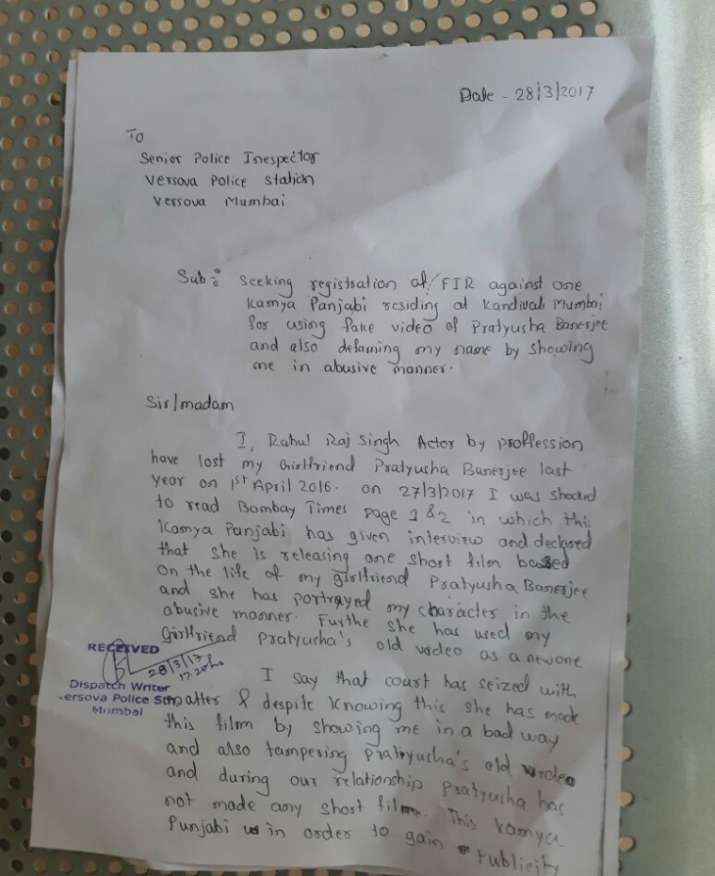 Date - 28/3/2017
To
Senior Police Inespector
Versova Police Station
Versova Mumbai
Sub: Seeking registration of FIR against one
Kamya Panjabi residing at Kandivali Mumbai
for using fake video of Pratyusha Banerjee
and also defaming my name by showing
me in abusive manner.
Sir/madam
I, Rahul Raj Singh Actor by proffession
have lost my Girlfriend Pratyusha Banerjee last
year on 1st April 2016. on 27/3/2017 I was shocked
to read Bombay Times page 1 & 2 in which this
Kamya Punjabi has given interview and declared
that she is releasing one short film based
on the life of my girlfriend Pratyusha Banerjee
and she has portrayed my character in the
abusive manner. Furthe she has used my
Girlfriend Pratyusha's old video as a new one
RECEIVED
28/3/17
Dispatch Writer
Versova Police Stn
Mumbai
I say that court has seized with
matter & despite knowing this she has made
this film by showing me in a bad way
and also tampering Pratyusha's old video
and during our relationship Pratyusha has
not made any short film. This Kamya
Punjabi in order to gain Publicity